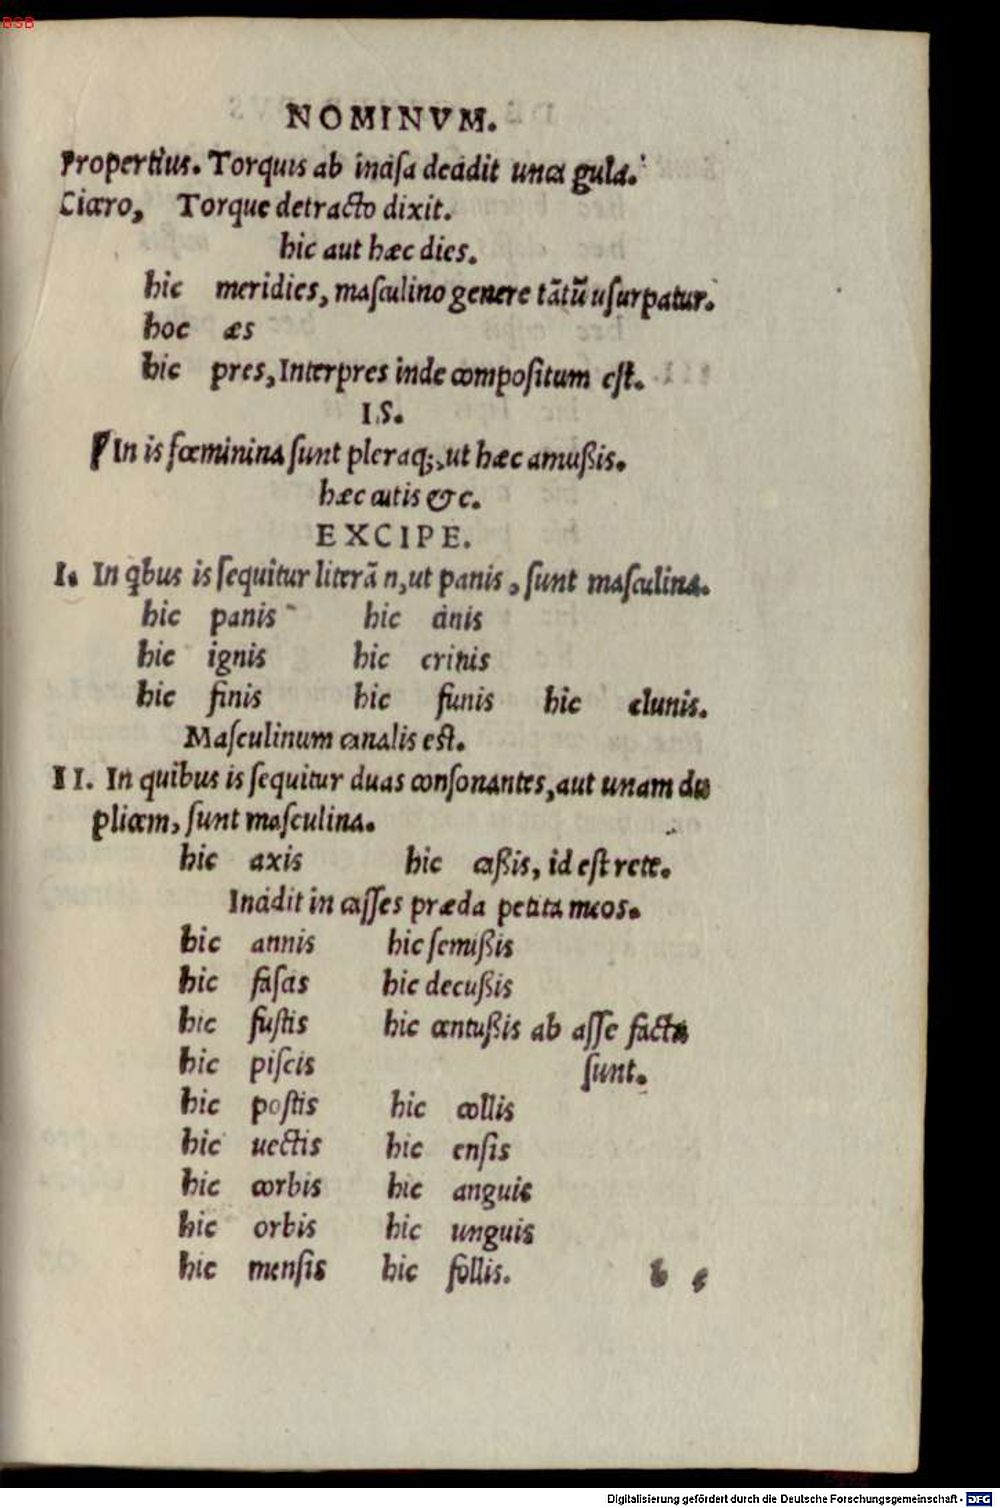 BSB
NOMINVM.
Propertius. Torquis ab incisa decidit unca gula.
Cicero, Torque detracto dixit.
hic aut hæc dies.
hic meridies, masculino genere tãtũ usurpatur.
hoc æs
hic pres, Interpres inde compositum est.
IS.
¶ In is fœminina sunt pleraq;, ut hæc amußis.
hæc cutis &c.
EXCIPE.
I. In qbus is sequitur literã n, ut panis, sunt masculina.
hic panis hic cinis
hic ignis hic crinis
hic finis hic funis hic clunis.
Masculinum canalis est.
II. In quibus is sequitur duas consonantes, aut unam du
plicem, sunt masculina.
hic axis hic caßis, id est rete.
Incidit in casses præda petita meos.
hic amnis hic semißis
hic fascis hic decußis
hic fustis hic centußis ab asse facta
hic piscis sunt.
hic postis hic collis
hic uectis hic ensis
hic corbis hic anguis
hic orbis hic unguis
hic mensis hic follis.
b
Digitalisierung gefördert durch die Deutsche Forschungsgemeinschaft - DFG